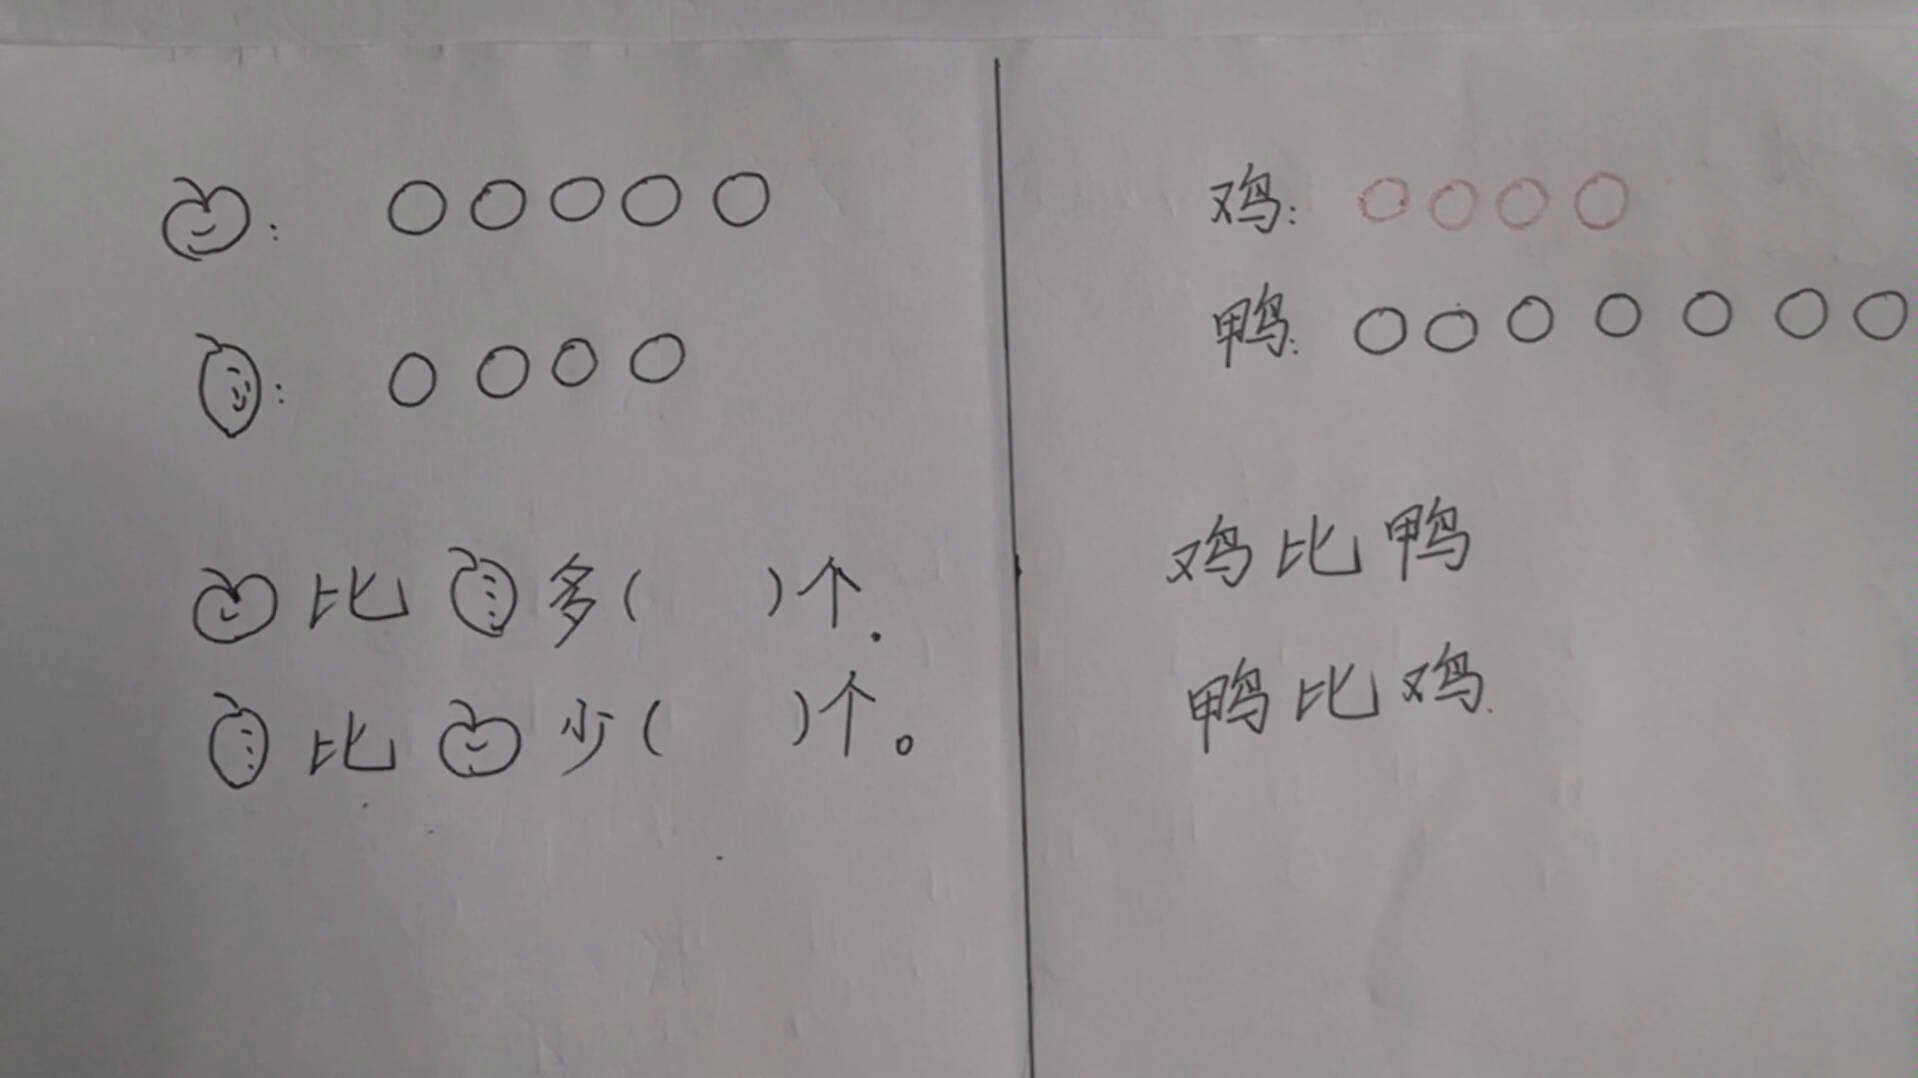 :
:
比 多( )个.
比 少( )个。
鸡:
鸭:
鸡比鸭
鸭比鸡.